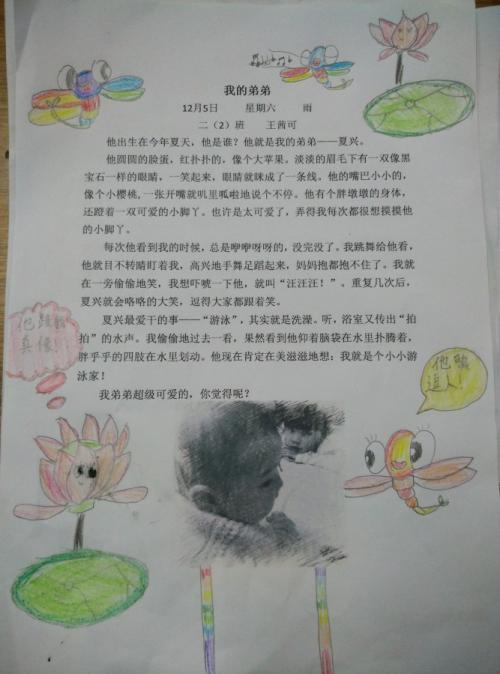 我的弟弟
12月5日 星期六 雨
二（2）班 王茜可
他出生在今年夏天，他是谁？他就是我的弟弟——夏兴。
他圆圆的脸蛋，红扑扑的，像个大苹果。淡淡的眉毛下有一双像黑
宝石一样的眼睛，一笑起来，眼睛就眯成了一条线。他的嘴巴小小的，
像个小樱桃,一张开嘴就叽里呱啦地说个不停。他有个胖墩墩的身体，
还蹬着一双可爱的小脚丫。也许是太可爱了，弄得我每次都很想摸摸他
的小脚丫。
每次他看到我的时候，总是咿咿呀呀的，没完没了。我跳舞给他看，
他就目不转睛盯着我，高兴地手舞足蹈起来，妈妈抱都抱不住了。我就
在一旁偷偷地笑，我想吓唬一下他，就叫“汪汪汪！”。重复几次后，
夏兴就会咯咯的大笑，逗得大家都跟着笑。
夏兴最爱干的事——“游泳”,其实就是洗澡。听，浴室又传出“拍
拍”的水声。我偷偷地过去一看，果然看到他仰着脑袋在水里扑腾着，
胖乎乎的四肢在水里划动。他现在肯定在美滋滋地想：我就是个小小游
泳家！
我弟弟超级可爱的，你觉得呢？
他跟我
真像！
他
逗人！